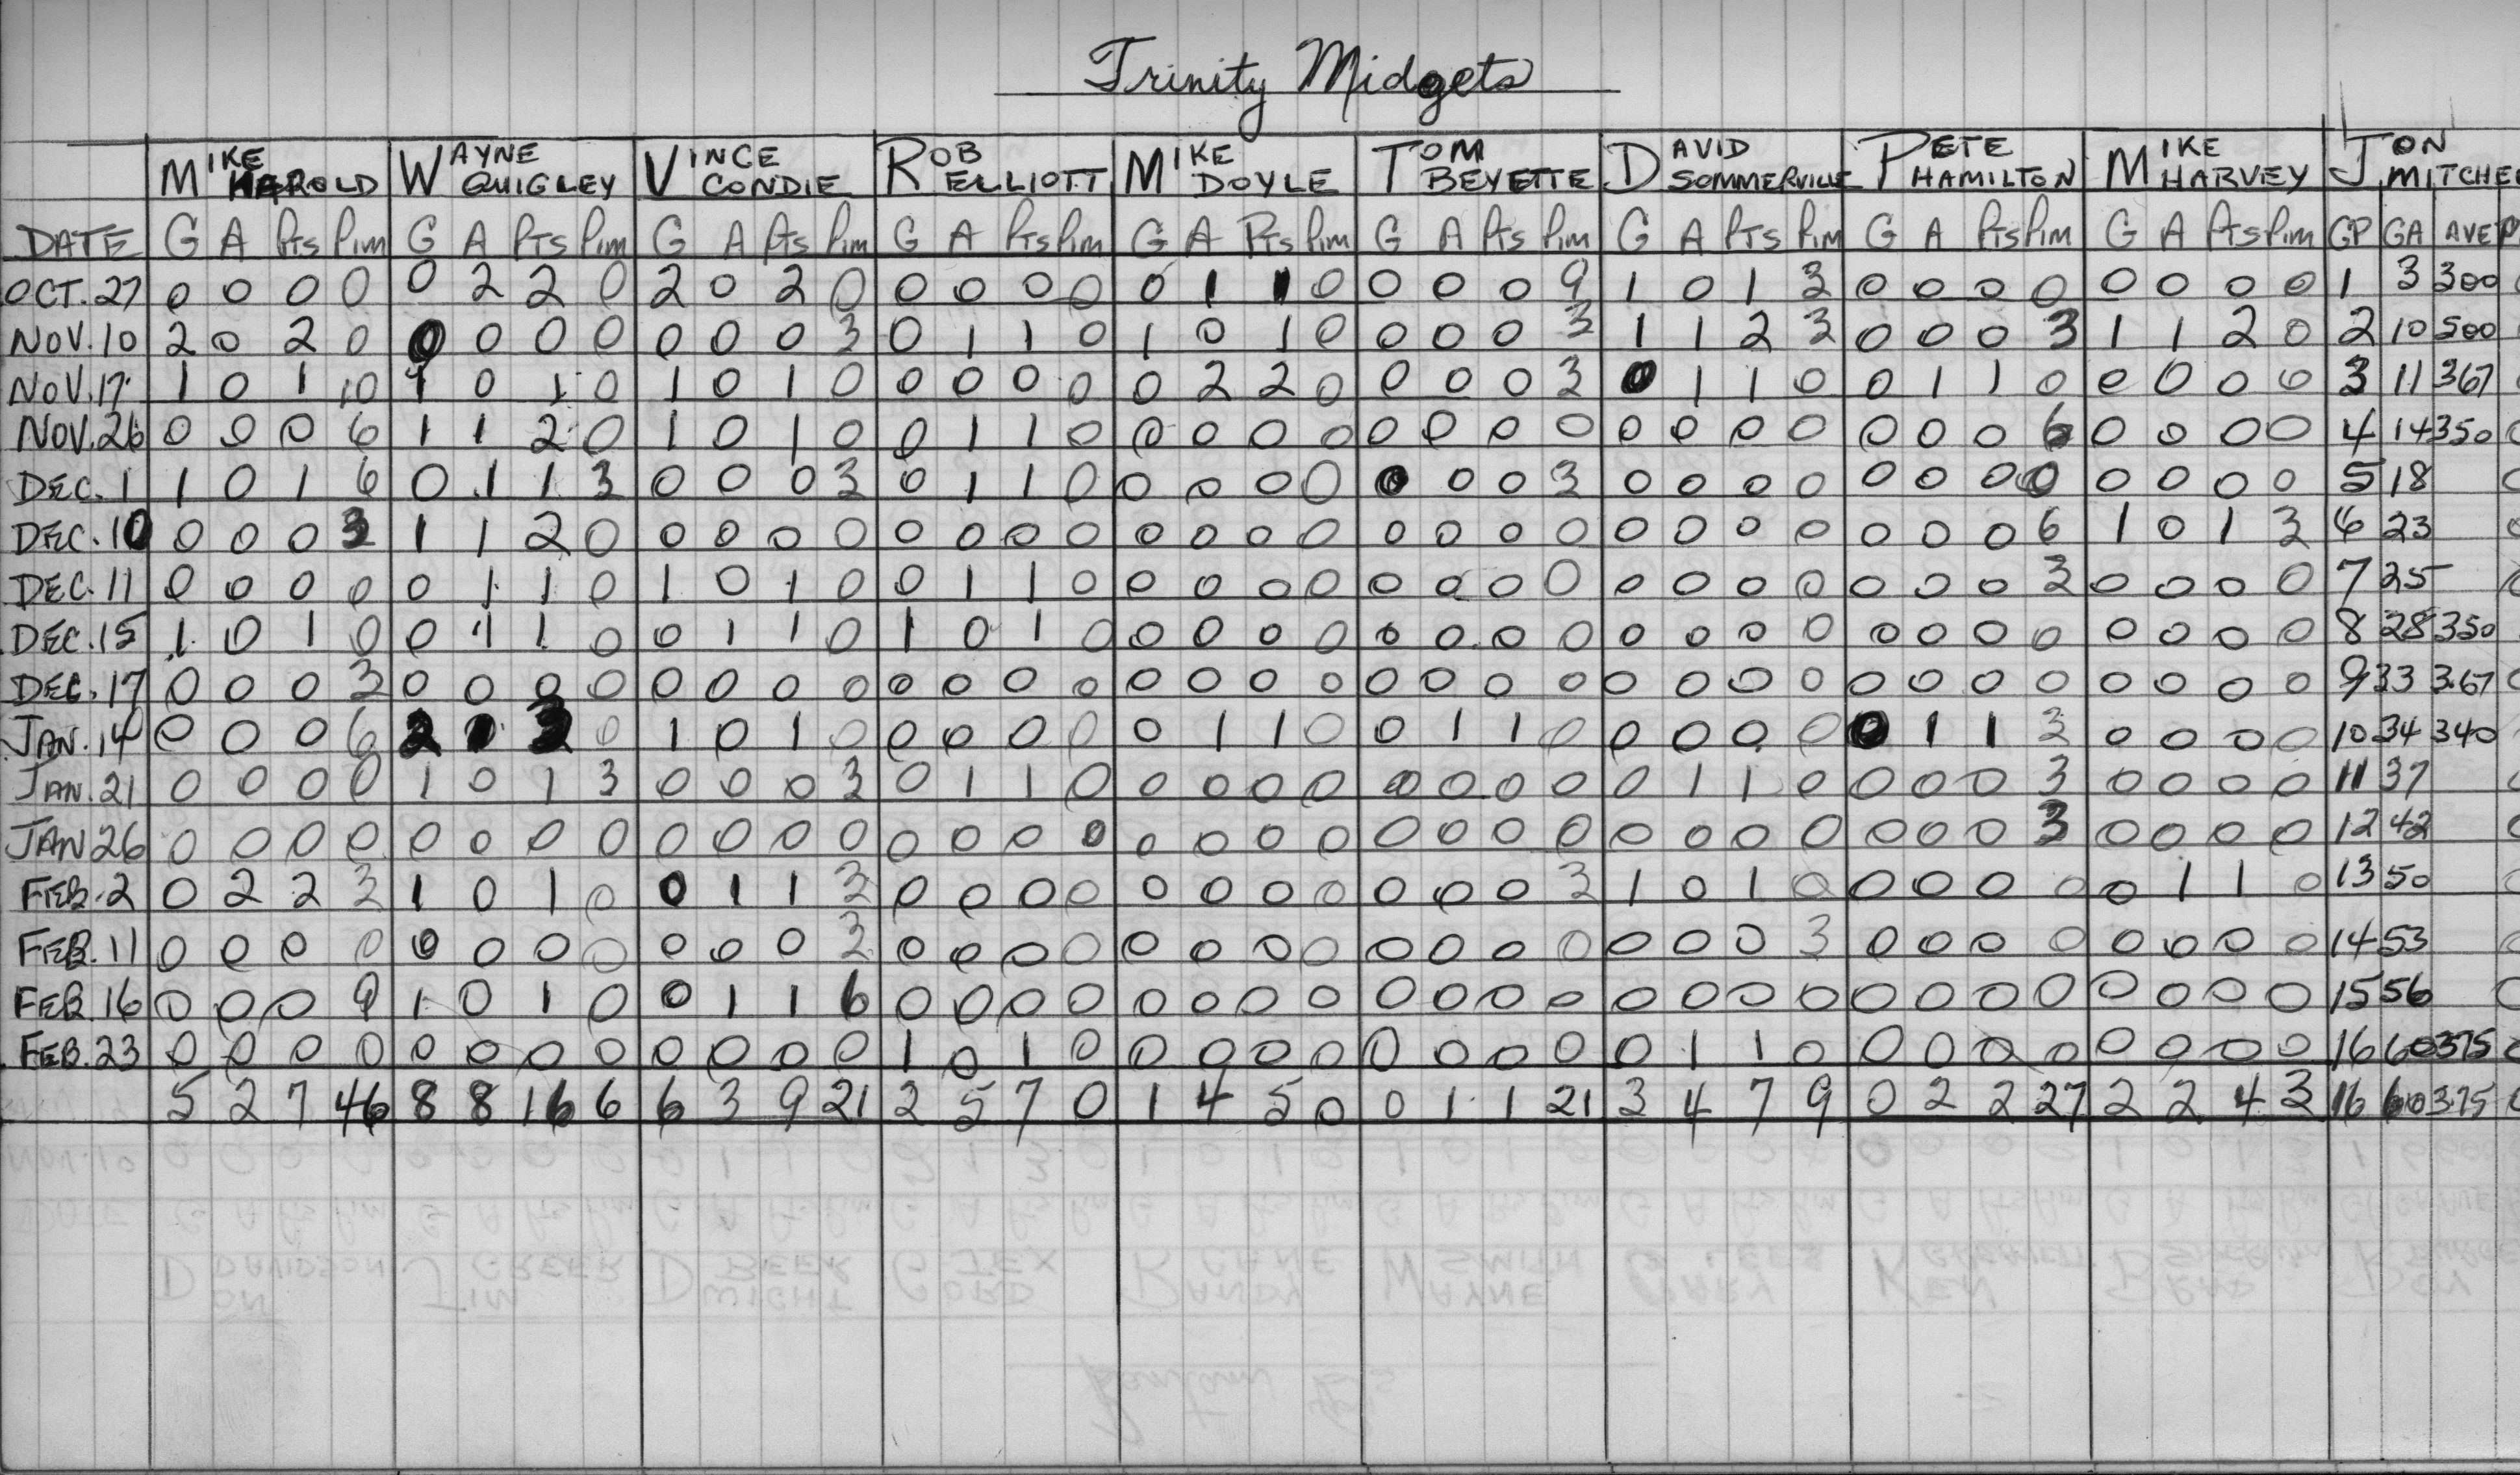 Trinity Midgets
MIKE HAROLD WAYNE QUIGLEY VINCE CONDIE ROB ELLIOTT MIKE DOYLE TOM BEYETTE DAVID SOMMERVILLE PETE HAMILTON MIKE HARVEY JON MITCHE
DATE G A Pts Pim G A PTS Pim G A Pts Pim G A Pts Pim G A Pts Pim G A Pts Pim G A PTS PiM G A Pts Pim G A Pts Pim GP GA AVE
OCT. 27 0 0 0 0 0 2 2 0 2 0 2 0 0 0 0 0 0 1 1 0 0 0 0 9 1 0 1 3 0 0 0 0 0 0 0 0 1 3 300
NOV. 10 2 0 2 0 0 0 0 0 0 0 0 3 0 1 1 0 1 0 1 0 0 0 0 3 1 1 2 3 0 0 0 3 1 1 2 0 2 10 500
NOV. 17 1 0 1 10 1 0 1 0 1 0 1 0 0 0 0 0 0 2 2 0 0 0 0 3 0 1 1 0 0 1 1 0 0 0 0 0 3 11 367
NOV. 26 0 0 0 6 1 1 2 0 1 0 1 0 0 1 1 0 0 0 0 0 0 0 0 0 0 0 0 0 0 0 0 6 0 0 0 0 4 14 350
DEC. 1 1 0 1 6 0 1 1 3 0 0 0 3 0 1 1 0 0 0 0 0 0 0 0 3 0 0 0 0 0 0 0 0 0 0 0 0 5 18
DEC. 10 0 0 0 3 1 1 2 0 0 0 0 0 0 0 0 0 0 0 0 0 0 0 0 0 0 0 0 0 0 0 0 6 1 0 1 3 6 23
DEC. 11 0 0 0 0 0 1 1 0 1 0 1 0 0 1 1 0 0 0 0 0 0 0 0 0 0 0 0 0 0 0 0 3 0 0 0 0 7 25
DEC. 15 1 0 1 0 0 1 1 0 0 1 1 0 1 0 1 0 0 0 0 0 0 0 0 0 0 0 0 0 0 0 0 0 0 0 0 0 8 28 350
DEC. 17 0 0 0 3 0 0 0 0 0 0 0 0 0 0 0 0 0 0 0 0 0 0 0 0 0 0 0 0 0 0 0 0 0 0 0 0 9 33 3.67
JAN. 14 0 0 0 6 2 1 3 0 1 0 1 0 0 0 0 0 0 1 1 0 0 1 1 0 0 0 0 0 0 1 1 3 0 0 0 0 10 34 340
JAN. 21 0 0 0 0 1 0 1 3 0 0 0 3 0 1 1 0 0 0 0 0 0 0 0 0 0 1 1 0 0 0 0 3 0 0 0 0 11 37
JAN 26 0 0 0 0 0 0 0 0 0 0 0 0 0 0 0 0 0 0 0 0 0 0 0 0 0 0 0 0 0 0 0 3 0 0 0 0 12 42
FEB. 2 0 2 2 3 1 0 1 0 0 1 1 3 0 0 0 0 0 0 0 0 0 0 0 3 1 0 1 0 0 0 0 0 0 1 1 0 13 50
FEB. 11 0 0 0 0 0 0 0 0 0 0 0 3 0 0 0 0 0 0 0 0 0 0 0 0 0 0 0 3 0 0 0 0 0 0 0 0 14 53
FEB. 16 0 0 0 9 1 0 1 0 0 1 1 6 0 0 0 0 0 0 0 0 0 0 0 0 0 0 0 0 0 0 0 0 0 0 0 0 15 56
FEB. 23 0 0 0 0 0 0 0 0 0 0 0 0 1 0 1 0 0 0 0 0 0 0 0 0 0 1 1 0 0 0 0 0 0 0 0 0 16 60 375
5 2 7 46 8 8 16 6 6 3 9 21 2 5 7 0 1 4 5 0 0 1 1 21 3 4 7 9 0 2 2 27 2 2 4 3 16 60 3.75